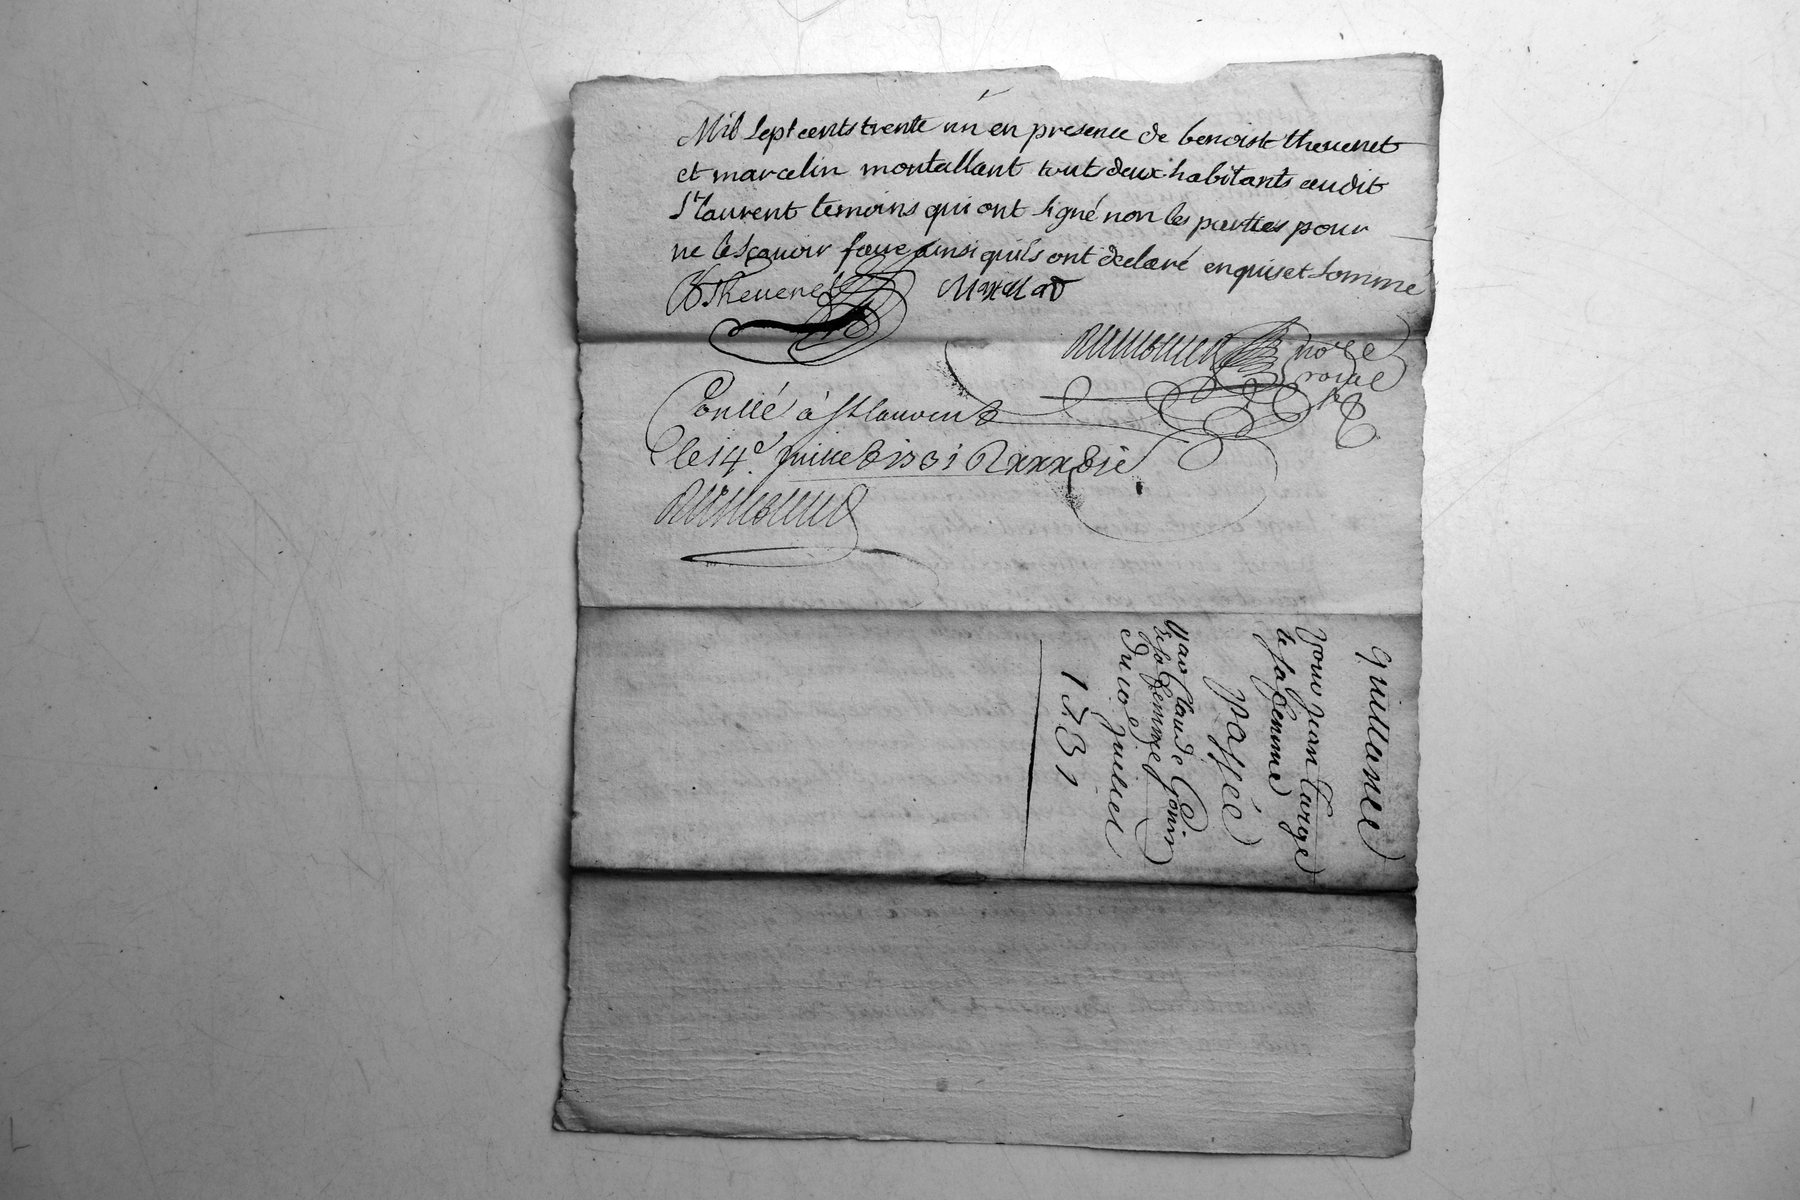 Mil Sept cents trente un en presence de benoist thevenet
et marcelin montallant touts deux habitants audit
St laurent temoins qui ont signé non les parties pour
ne le sçavoir faire ainsi quils ont declaré enquis et sommé
B Thevenet
nore
roial
Conllé à St laurent
le 14e Juillet 1731 R xxx
Quittance
pour jean Targe
et sa femme
passée
par Claude Gonin
et sa femme
Du 10e juillet
1731